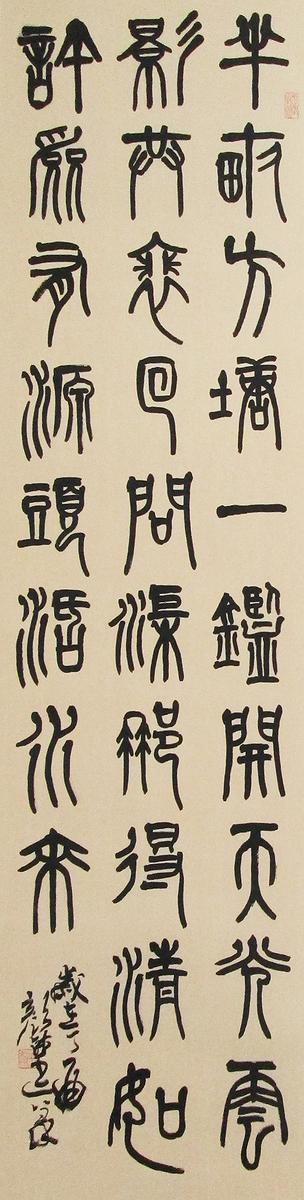 半畝方塘一鑑開天光雲
影共裵回問渠那得清如
許爲有源頭活水來
歲在